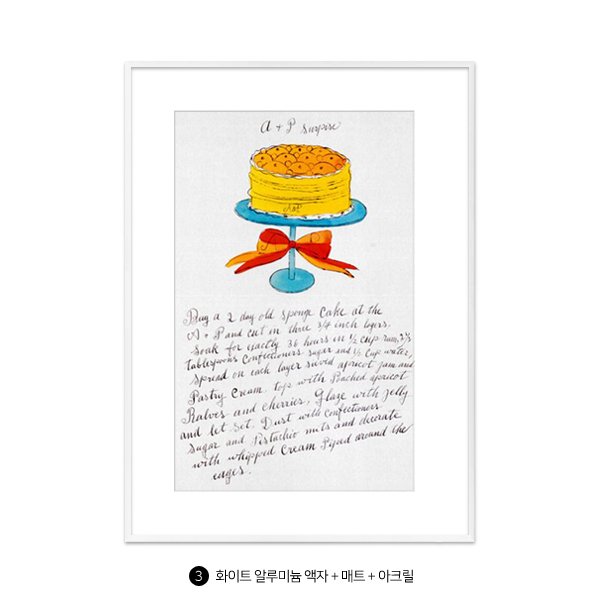 A + P Surprise
A&P
Buy a 2 day old sponge Cake at the
A + P and cut in three 3/4 inch layers.
Soak for exactly 36 hours in ½ cup rum, 2½
tablespoons Confectioners sugar and ⅓ Cup water,
Spread on each layer sieved apricot jam and
Pastry Cream. top with Poached apricot
Halves and cherries, Glaze with jelly
and let Set. Dust with Confectioners
Sugar and Pistachio nuts and decorate
with whipped Cream Piped around the
edges.
3 화이트 알루미늄 액자 + 매트 + 아크릴